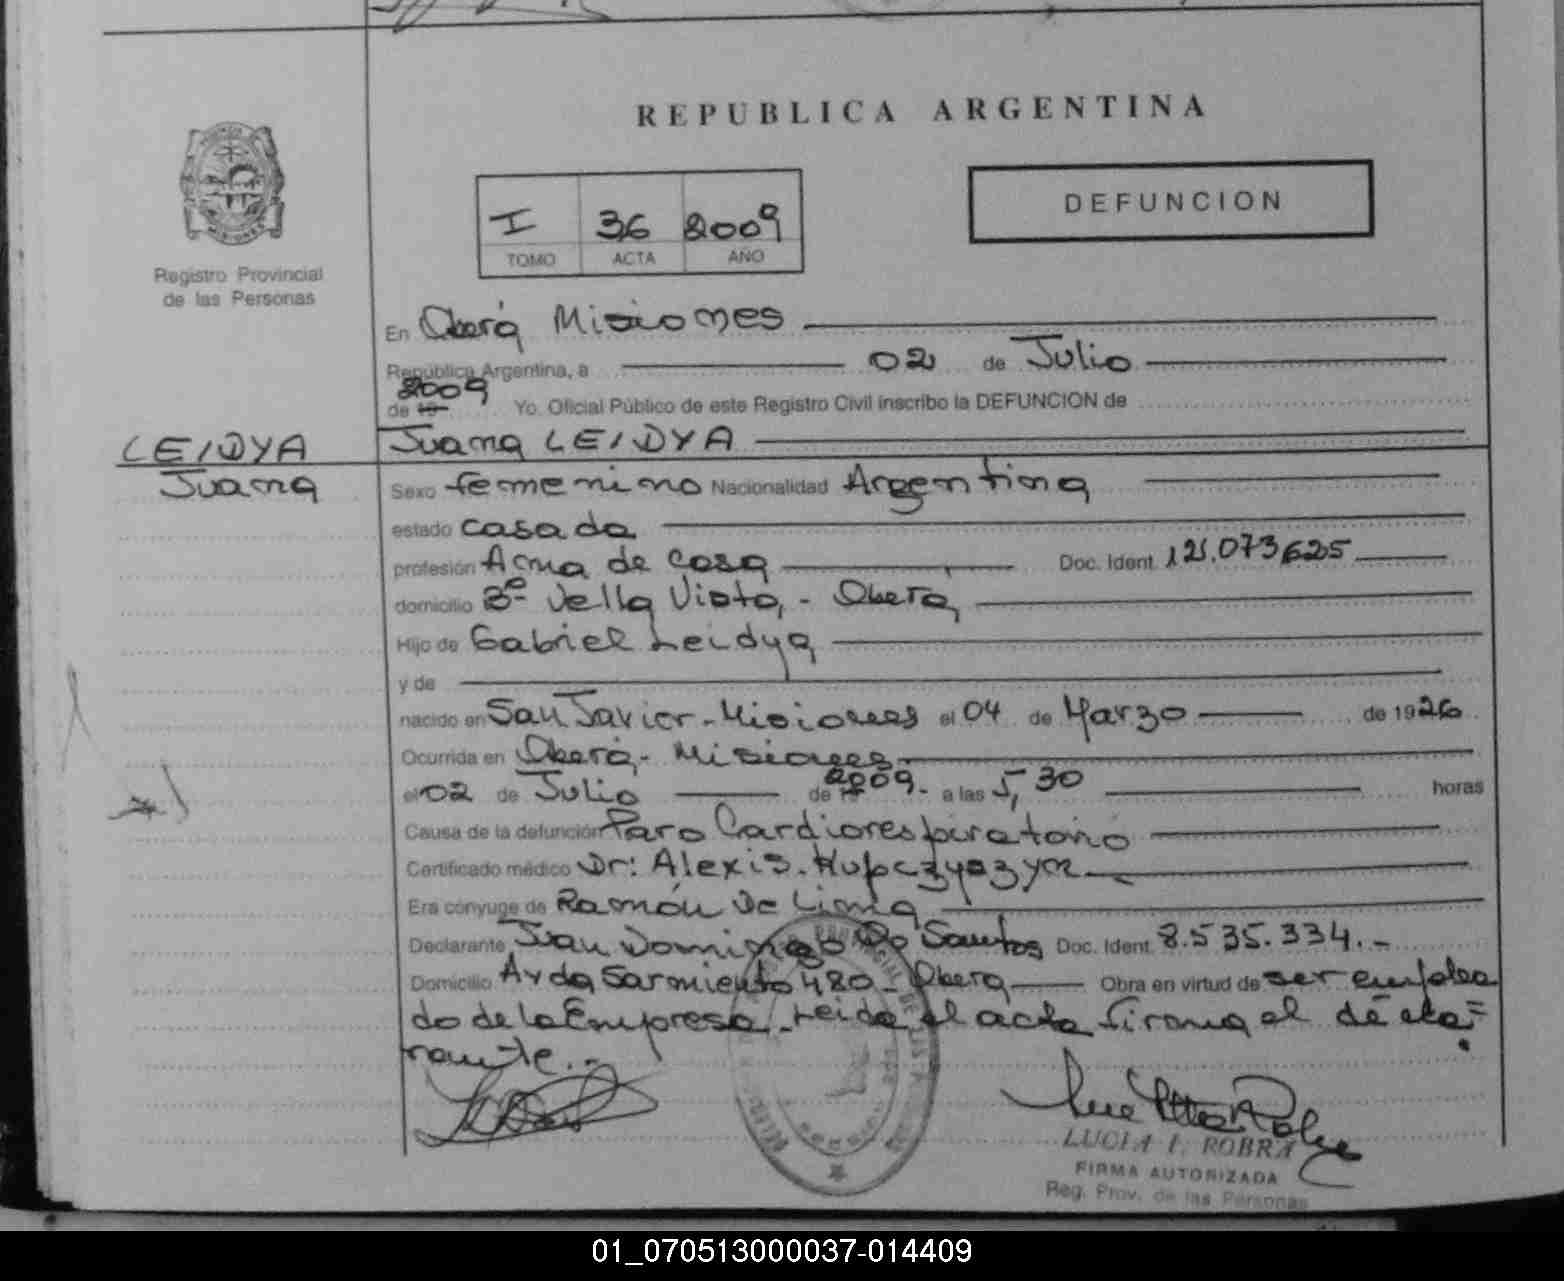 REPUBLICA ARGENTINA
I 36 2009
TOMO ACTA AÑO
DEFUNCION
Registro Provincial
de las Personas
En Oberá Misiones
República Argentina, a 02 de Julio
2009
de 19 Yo, Oficial Público de este Registro Civil inscribo la DEFUNCION de
LEIDYA
Juana
Juana LEIDYA
Sexo femenino Nacionalidad Argentina
estado casada
profesión Ama de casa Doc. Ident.
domicilio Bº Vella Vista,- Obera,
Hijo de Gabriel Leidya
y de
nacido en San Javier-Misiones el 04 de Marzo de 1926
Ocurrida en Oberá- Misiones
el 02 de Julio de 2009.- a las 5,30 horas
Causa de la defunción Paro Cardiorespiratorio
Certificado médico Dr: Alexis.
Era cónyuge de Ramón De Lima
Declarante Juan Domingo Do Santos Doc. Ident. 8.535.334.-
Domicilio Avda Sarmiento 480- Obera Obra en virtud de ser emplea
do de la Empresa, Leida el acta firma el decla=
rante.-
LUCIA I. ROBRA
FIRMA AUTORIZADA
Reg. Prov. de las Personas
01_070513000037-014409